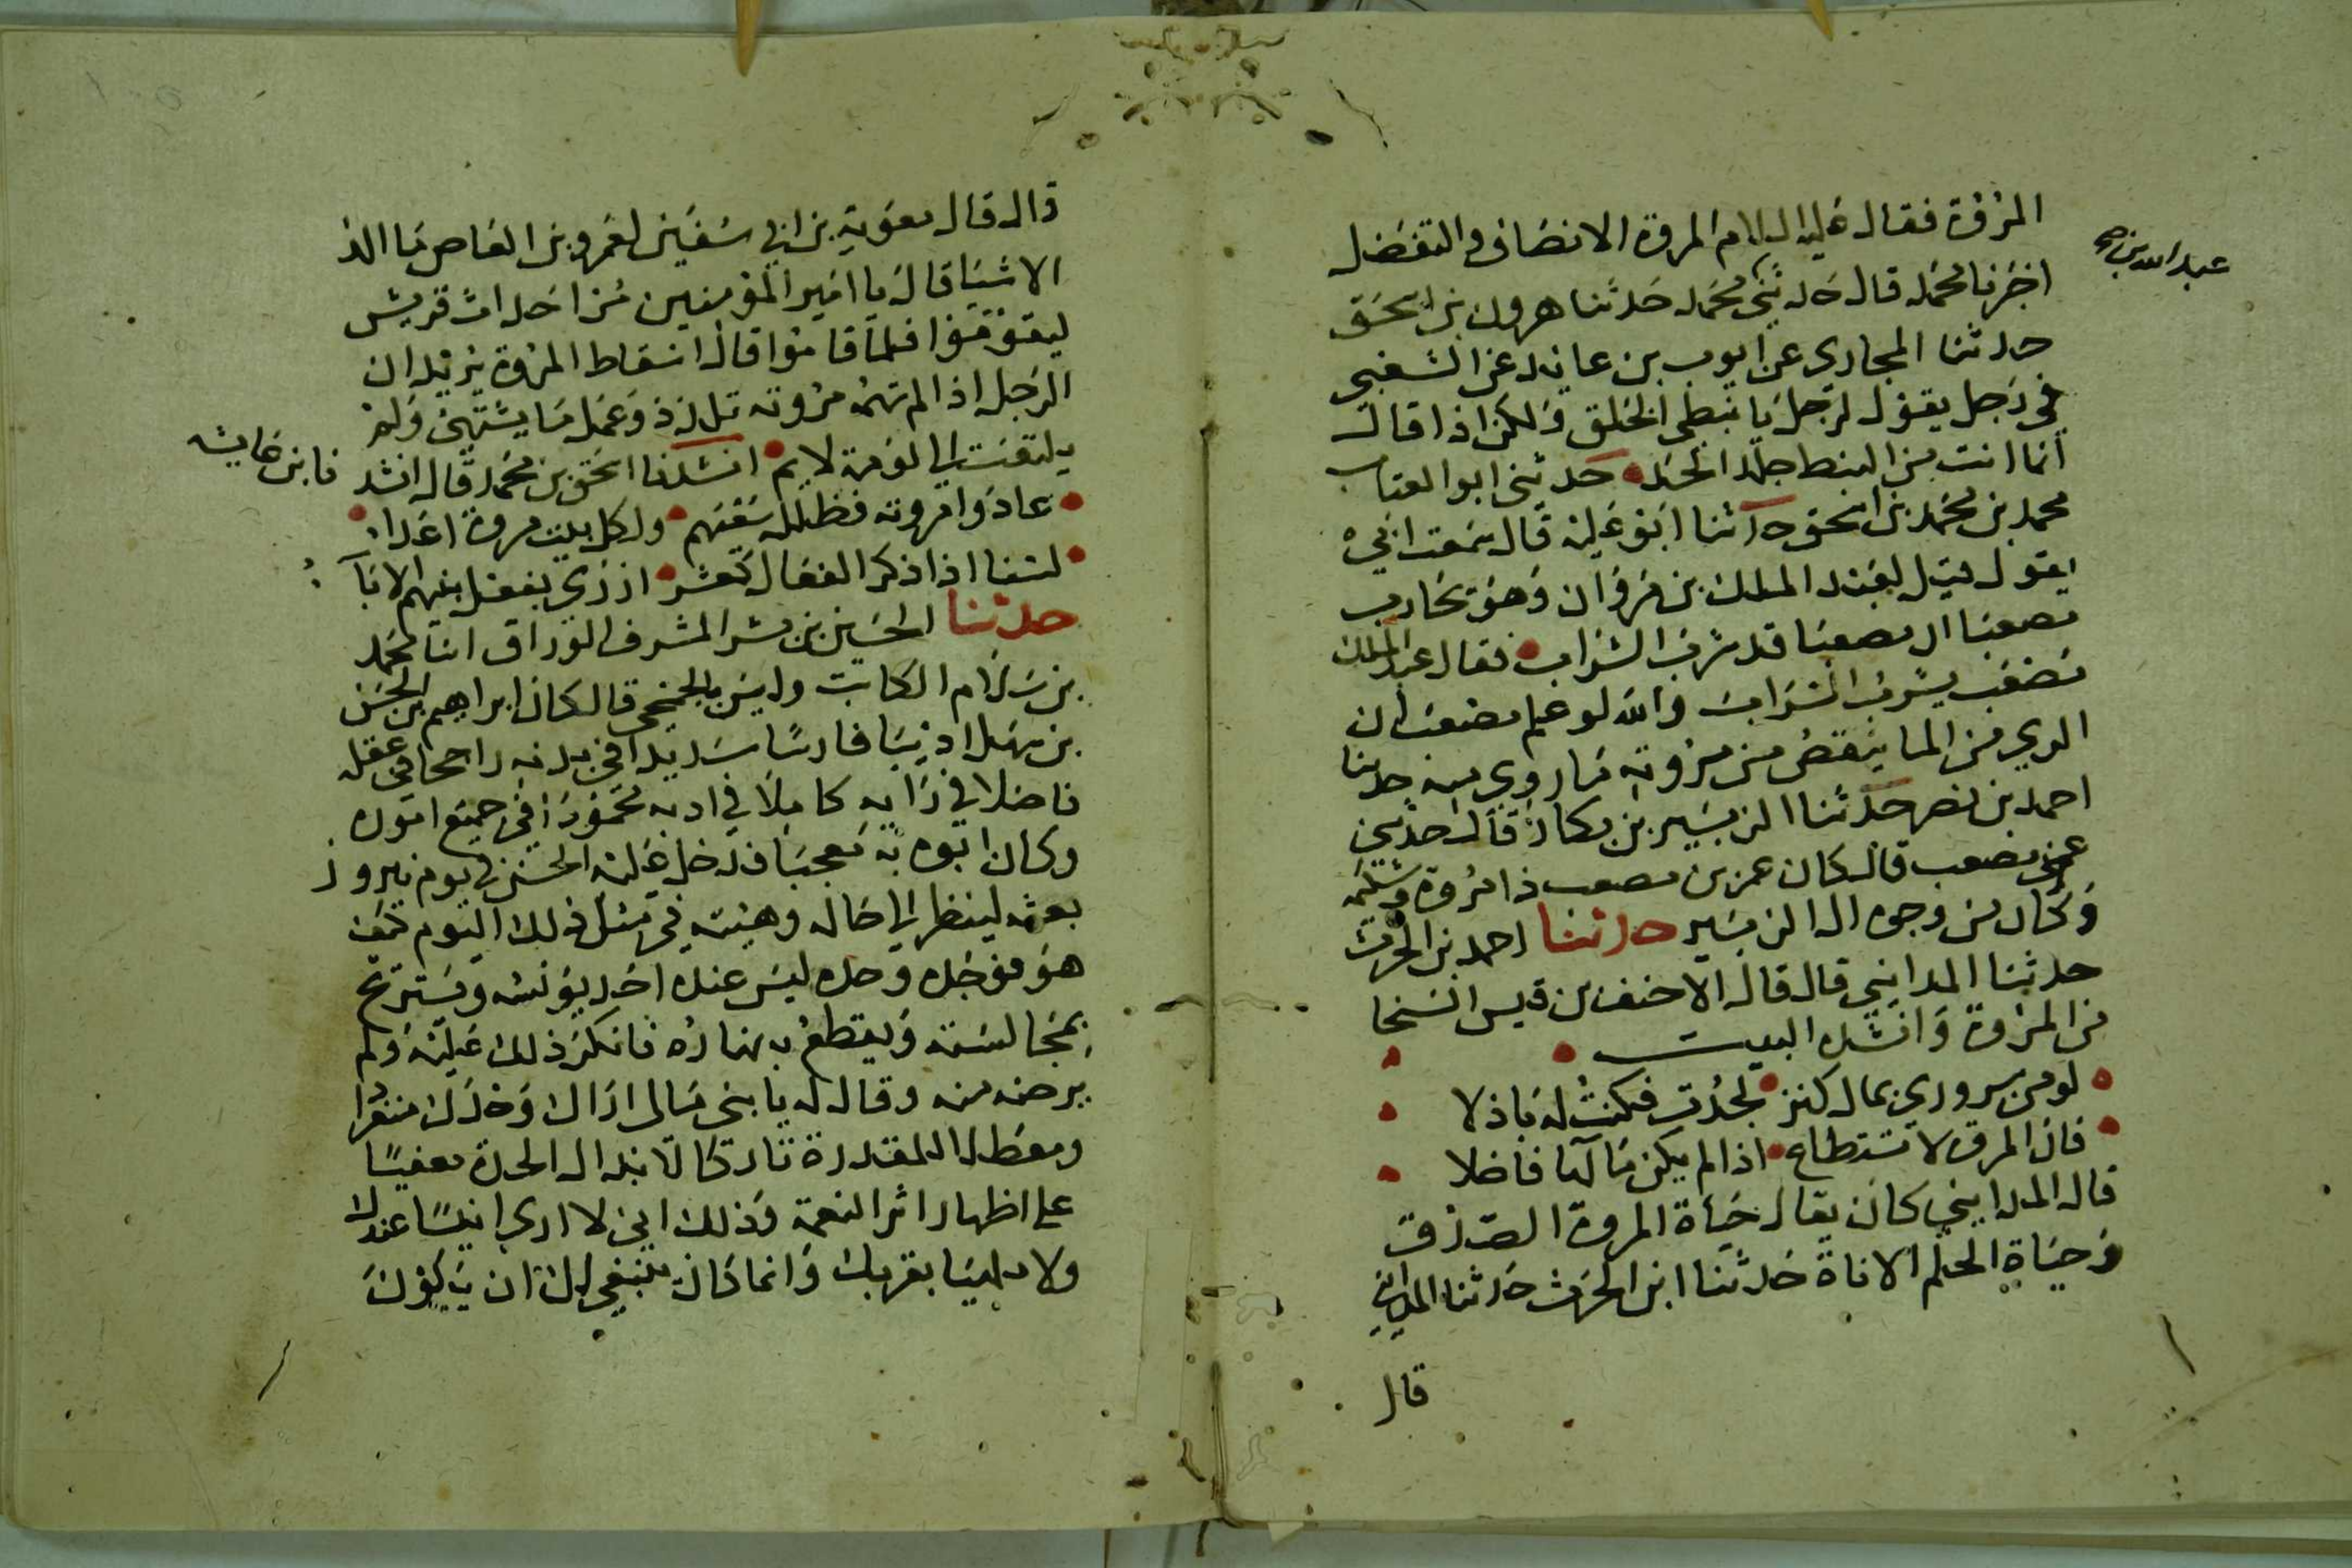 المروة فقال عليه السلام المروة الانصاف والتفضل
عبد الله بن صح
اخبرنا محمد قال حدثني محمد حدثنا هرون بن اسحق
حدثنا المحاربي عن ايوب بن عايد عن الشعبي
في رجل يقول لرجل يا نبطي الخلق ولكن اذا قال
انما انت من النبط جلد الحد حدثني ابو العتاب
محمد بن محمد بن اسحق حدثنا ابن علية قال سمعت ابي
يقول قيل لعبد الملك بن مروان وهو يحارب
مصعبا ان مصعبا قد شرب الشراب فقال عبد الملك
مصعب يشرب الشراب والله لو علم مصعب ان
الري من الما ينقص من مروته ما روي منه حدثنا
احمد بن نصر حدثنا الزبير بن بكار قال حدثني
عمي مصعب قال كان عمر بن مصعب ذا مروة
وكان من وجوه ال الزبير حدثنا احمد بن الحرث
حدثنا المدايني قال قال الاحنف بن قيس السخا
من المروة وانشد البيت
لو من سروري بمال كنز لجدت فكنت له باذلا
فان المروة لا تستطاع اذا لم يكن مالها فاضلا
قال المدايني كان يقال حياة المروة الصدق
وحياة الحلم الاناة حدثنا ابن الحرث حدثنا المدايني
قال
قال قال معوية بن ابي سفين لعمرو بن العاص ما الذ
الاشيا قال يا امير المؤمنين مر احداث قريش
ليقوموا فلما قاموا قال اسقاط المروة يريد ان
الرجل اذا لم تهمه مروته تلذذ وعمل ما يشتهي ولم
يلتفت الى لومة لايم انشدنا اسحق بن محمد قال انشد
نا ابن عايشه
عادوا مروته فظلل سعيهم ولكل بيت مروة اعداء
لسنا اذا ذكر الفعال كمعشر ازري بفعل ابنيهم الاباء
حدثنا الحسين بن بشر المشرف الوراق انا محمد
بن سلام الكاتب وليس بالجمحي قال كان ابراهيم بن الحسن
بن سهل اديبا فارسا سديدا في بدنه راجحا في عقله
فاضلا في رايه كاملا في ادبه محمودا في جميع اموره
وكان ابوه به معجبا فدخل عليه الحسن في يوم نيروز
بعثه لينظر الى حاله وهيئته في مثل ذلك اليوم كيف
هو فوجده وحده ليس عنده احد يونسه ويستريح
بمجالسته ويقطع به نهاره فانكر ذلك عليه ولم
يرضه منه وقال له يا بني مالى اراك وحدك منفردا
ومعطلا للمقدرة تاركا لابتدال الجدة معفيا
على اظهار اثر النعمة وذلك اني لا ارى انيسا عندك
ولا جليسا بقربك وانما كان ينبغي لك ان يكون